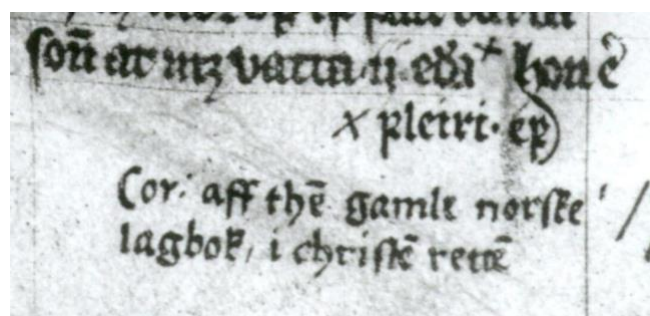 ſon̄ at mꝫ vatta·ij· eða⁺ hon ē
× pleiri· eꝑ)
Cor: aff thē gamle norſke
lagbok, i chriſtē rettē